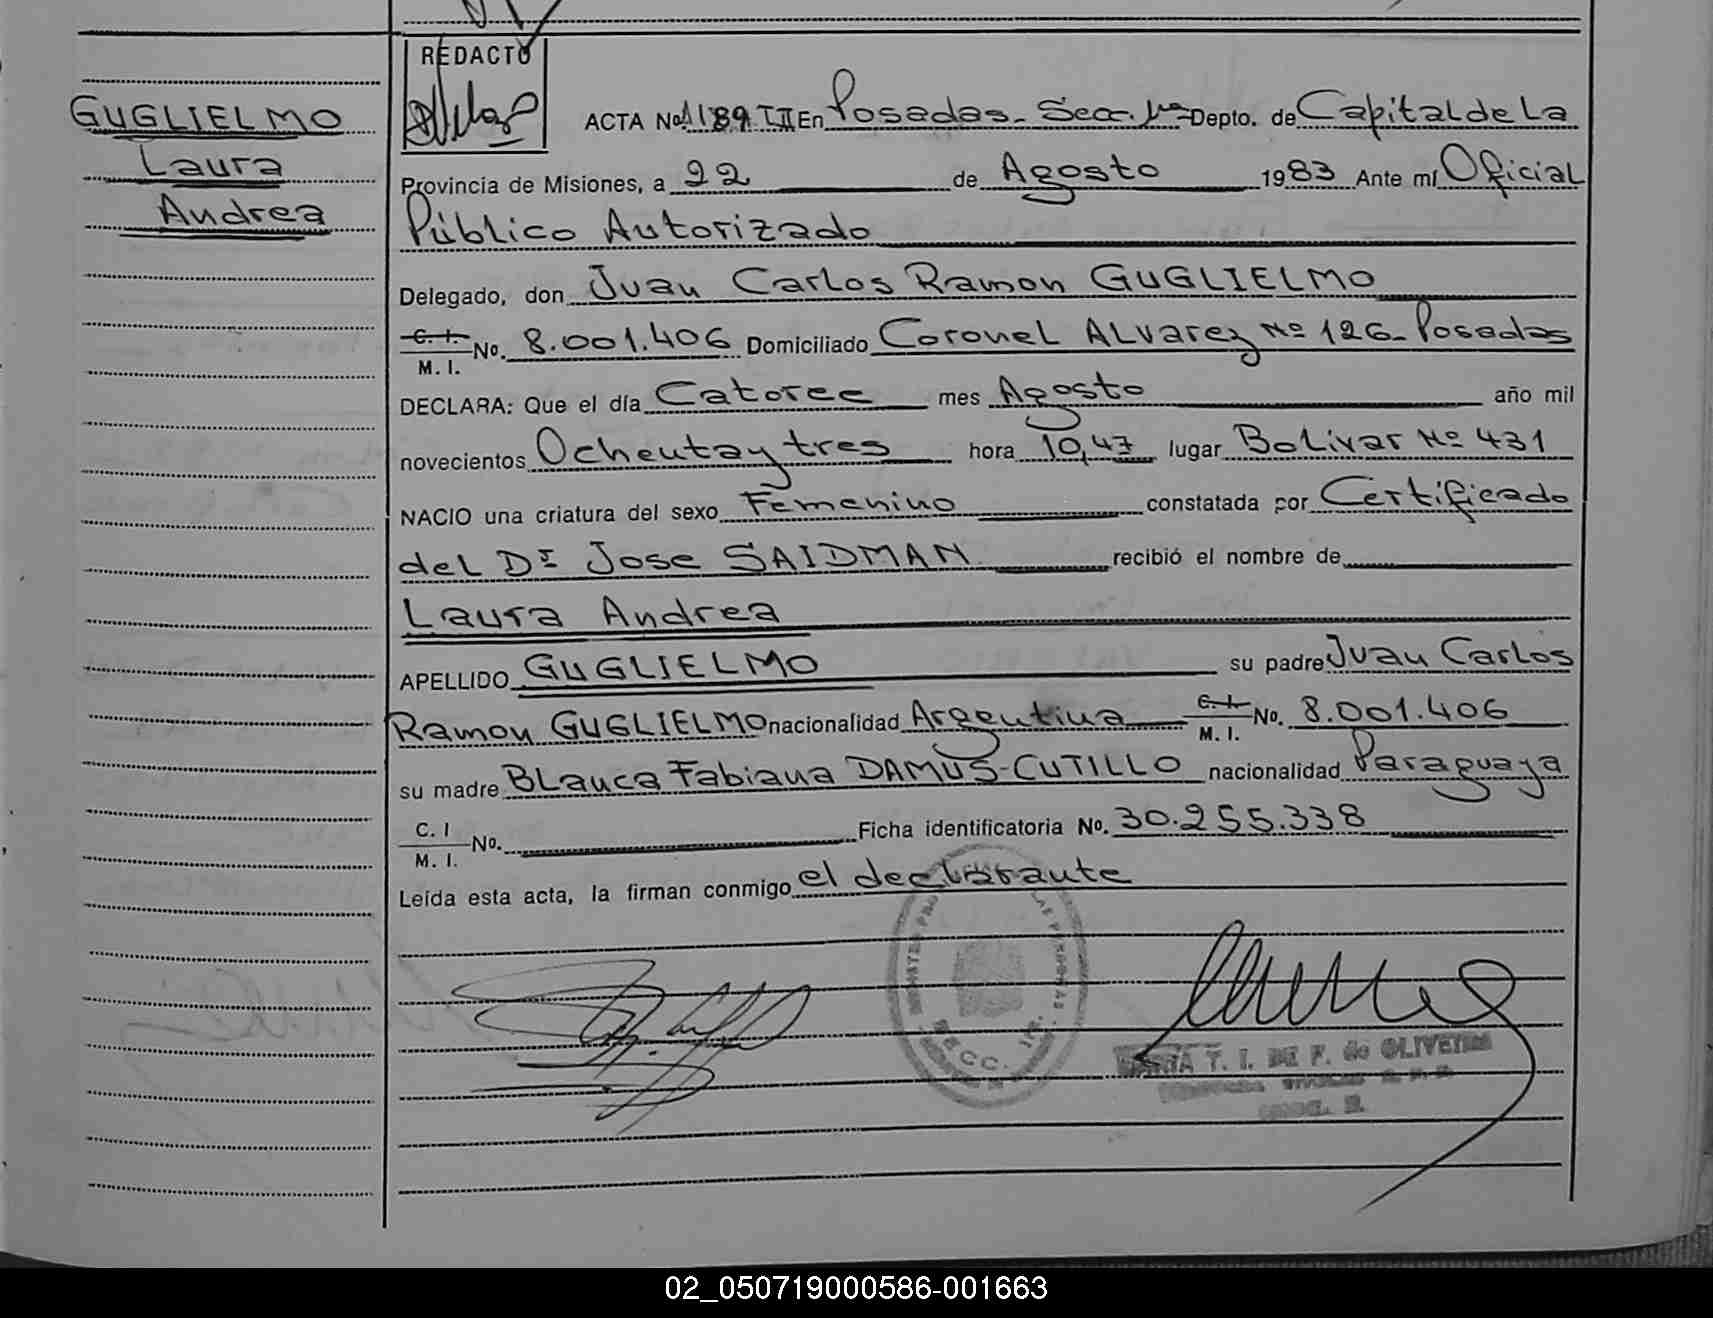 REDACTO
GUGLIELMO
Laura
Andrea
ACTA No. 1189 TII En Posadas - Secc. 1ra Depto. de Capital de La
Provincia de Misiones, a 22 de Agosto 1983 Ante mí Oficial
Público Autorizado
Delegado, don Juan Carlos Ramon GUGLIELMO
C. I. M. I. No. 8.001.406 Domiciliado Coronel Alvarez Nº 126 - Posadas
DECLARA: Que el día Catorce mes Agosto año mil
novecientos Ochenta y tres hora 10,47 lugar Bolivar Nº 431
NACIO una criatura del sexo Femenino constatada por Certificado
del Dr Jose SAIDMAN recibió el nombre de
Laura Andrea
APELLIDO GUGLIELMO su padre Juan Carlos
Ramon GUGLIELMO nacionalidad Argentina C. I. M. I. No. 8.001.406
su madre Blanca Fabiana DAMUS-CUTILLO nacionalidad Paraguaya
C. I M. I. No. Ficha identificatoria No. 30.255.338
Leída esta acta, la firman conmigo el declarante
T. I. DE F. de OLIVEIRA
02_050719000586-001663